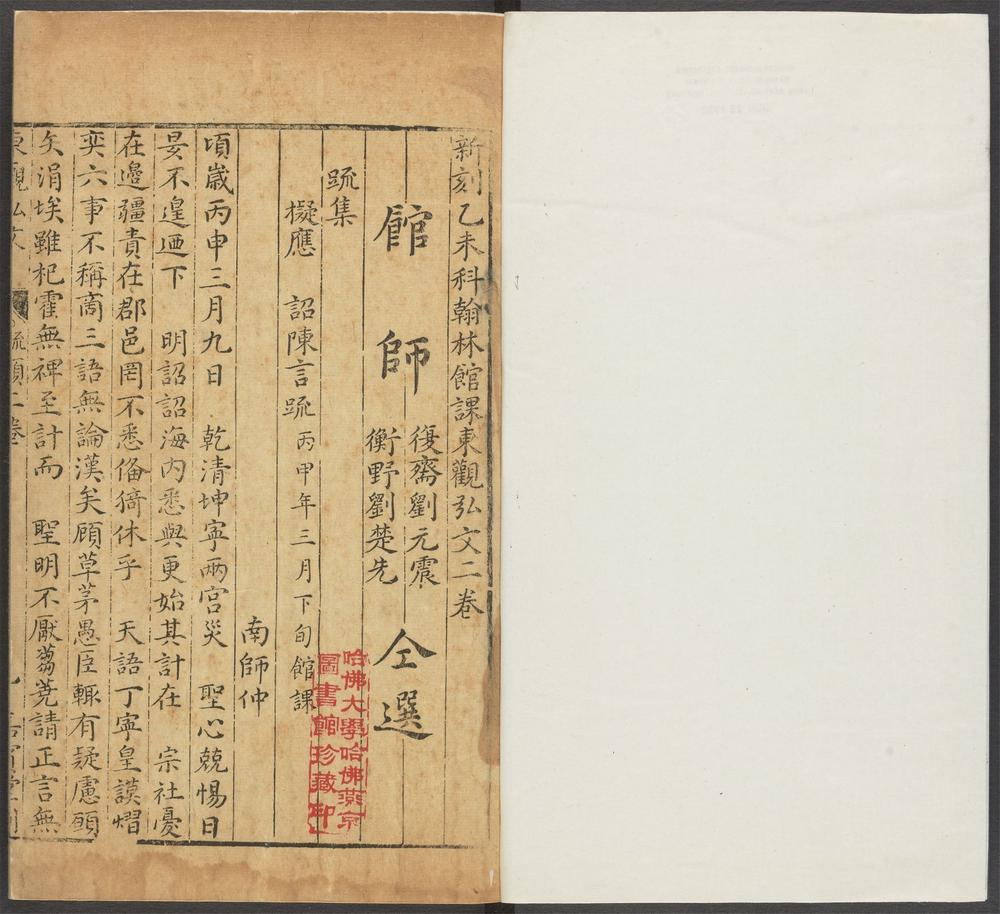 新刻乙未科翰林館課東觀弘文二卷
館師
復齋劉元震
衡野劉楚先
仝選
疏集
擬應　詔陳言疏丙申年三月下旬館課
南師仲
頃歳丙申三月九日　乾清坤寧兩宮災　聖心兢惕日
晏不遑迺下　明詔詔海内悉與更始其計在　宗社憂
在邉疆責在郡邑罔不悉偹猗休乎　天語丁寧皇謨熠
奕六事不稱啇三語無論漢矣顧草茅愚臣輙有疑慮願
矢涓埃雖杞霍無裨至計而　聖明不厭蒭蕘請正言無
東觀弘文
疏類二卷
哈佛大學哈佛燕京
圖書館珍藏印